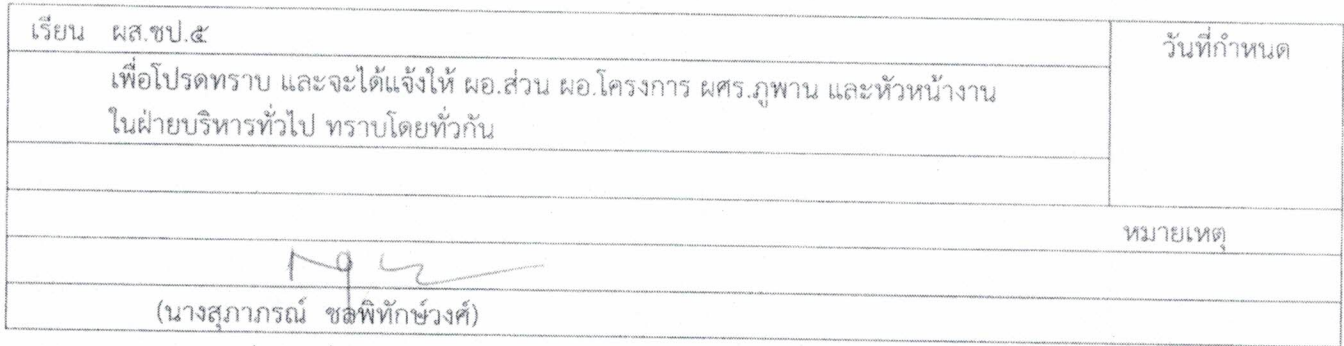 เรียน ผส.ชป.๕
วันที่กำหนด
เพื่อโปรดทราบ และจะได้แจ้งให้ ผอ.ส่วน ผอ.โครงการ ผศร.ภูพาน และหัวหน้างาน
ในฝ่ายบริหารทั่วไป ทราบโดยทั่วกัน
หมายเหตุ
(นางสุภาภรณ์ ชลพิทักษ์วงศ์)